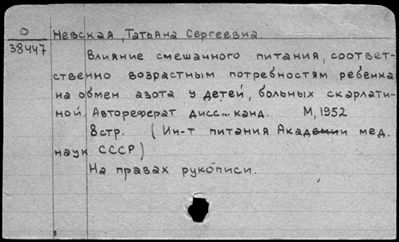 О
38447
Невская, Татьяна Сергеевна
Влияние смешанного питания, соответ-
ственно возрастным потребностям ребенка
на обмен азота у детей, больных скарлати-
ной. Автореферат дисс... канд. М, 1952
8стр. (Ин-т питания Академии мед.
наук СССР)
На правах рукописи.